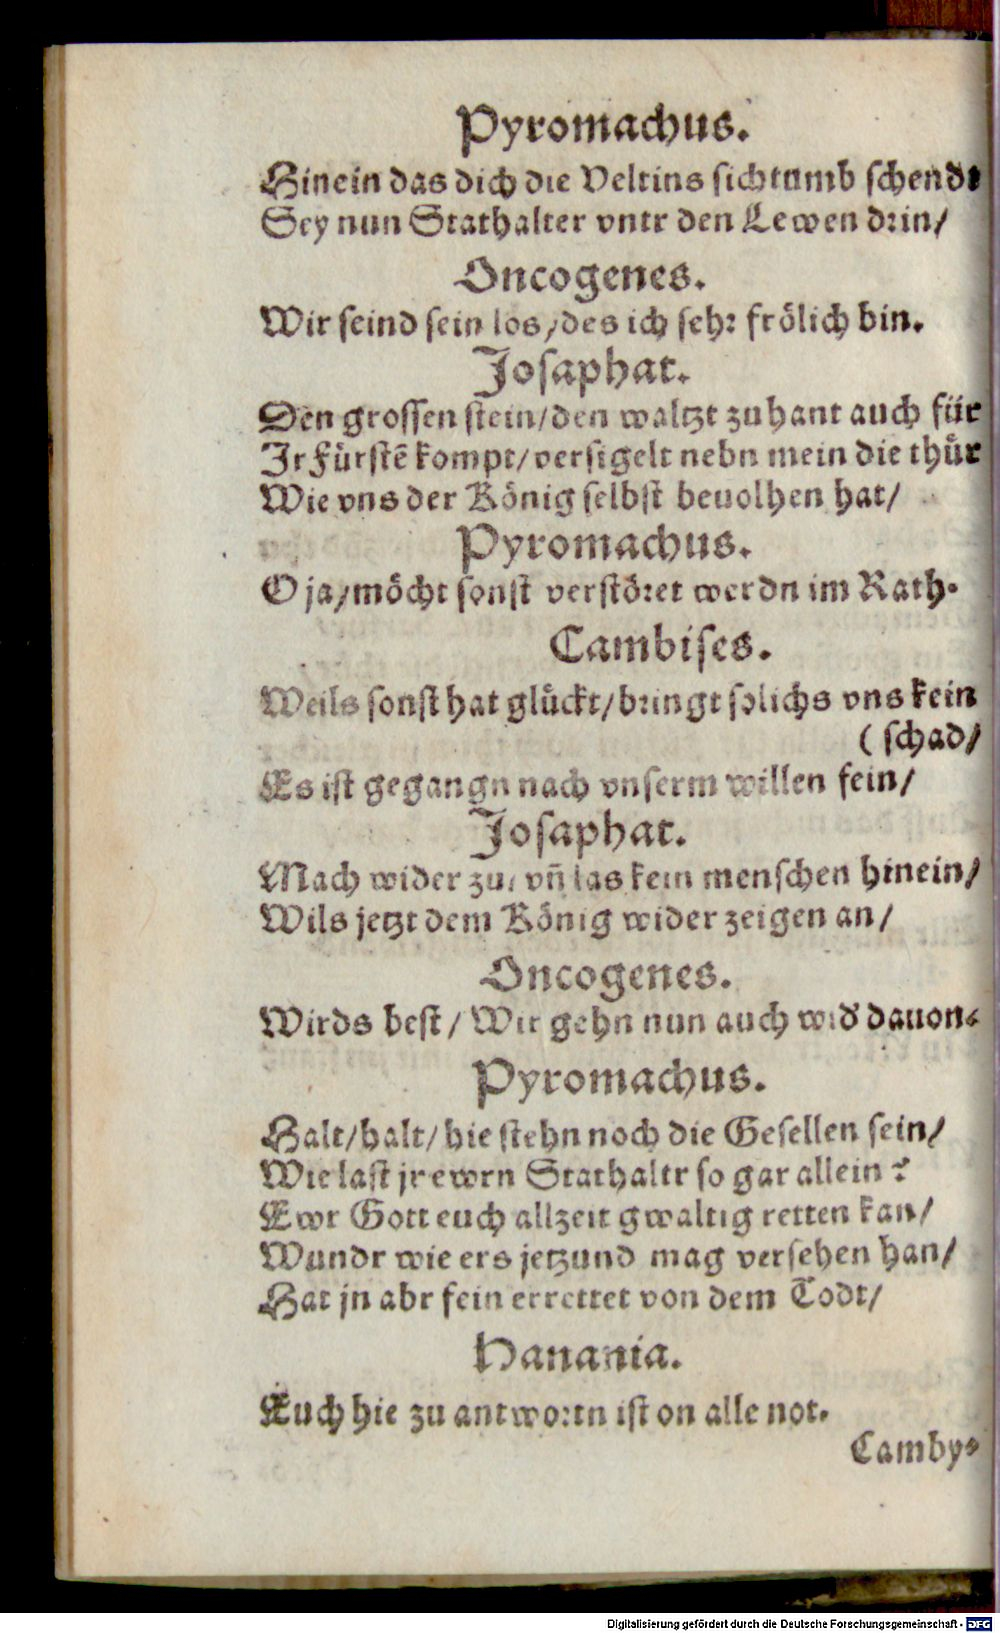 Pyromachus.
Hinein das dich die Veltins sichtumb schendt
Sey nun Stathalter vntr den Lewen drin/
Oncogenes.
Wir seind sein los/des ich sehr frölich bin.
Josaphat.
Den grossen stein/den waltzt zuhant auch für
Jr Fürstẽ kompt/versigelt nebn mein die thür
Wie vns der König selbst beuolhen hat/
Pyromachus.
O ja/möcht sonst verstöret werdn im Rath.
Cambises.
Weils sonst hat glückt/bringt solichs vns kein
(schad/
Es ist gegangn nach vnserm willen fein/
Josaphat.
Mach wider zu/ vñ las kein menschen hinein/
Wils jetzt dem König wider zeigen an/
Oncogenes.
Wirds best/ Wir gehn nun auch wid' dauon.
Pyromachus.
Halt/halt/hie stehn noch die Gesellen sein/
Wie last jr ewrn Stathaltr so gar allein?
Ewr Gott euch allzeit gwaltig retten kan/
Wundr wie ers jetzund mag versehen han/
Hat jn abr fein errettet von dem Todt/
Hanania.
Euch hie zu antwortn ist on alle not.
Camby-
Digitalisierung gefördert durch die Deutsche Forschungsgemeinschaft - DFG